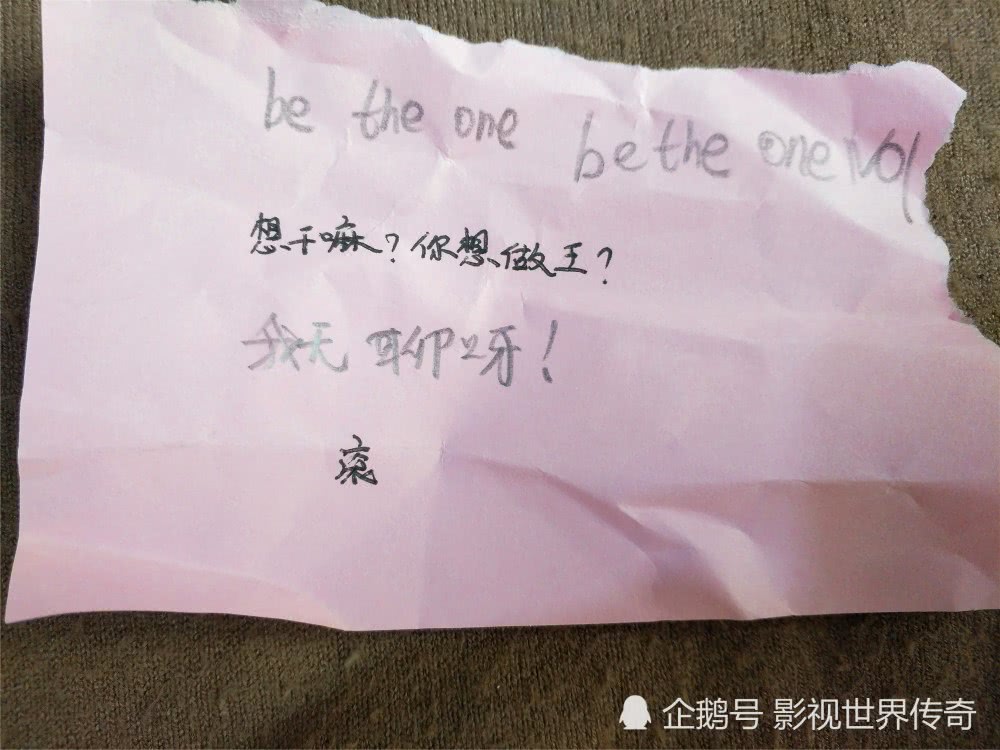 be the one be the one
想干嘛？你想做王？
我无聊呀！
滚
企鹅号 影视世界传奇